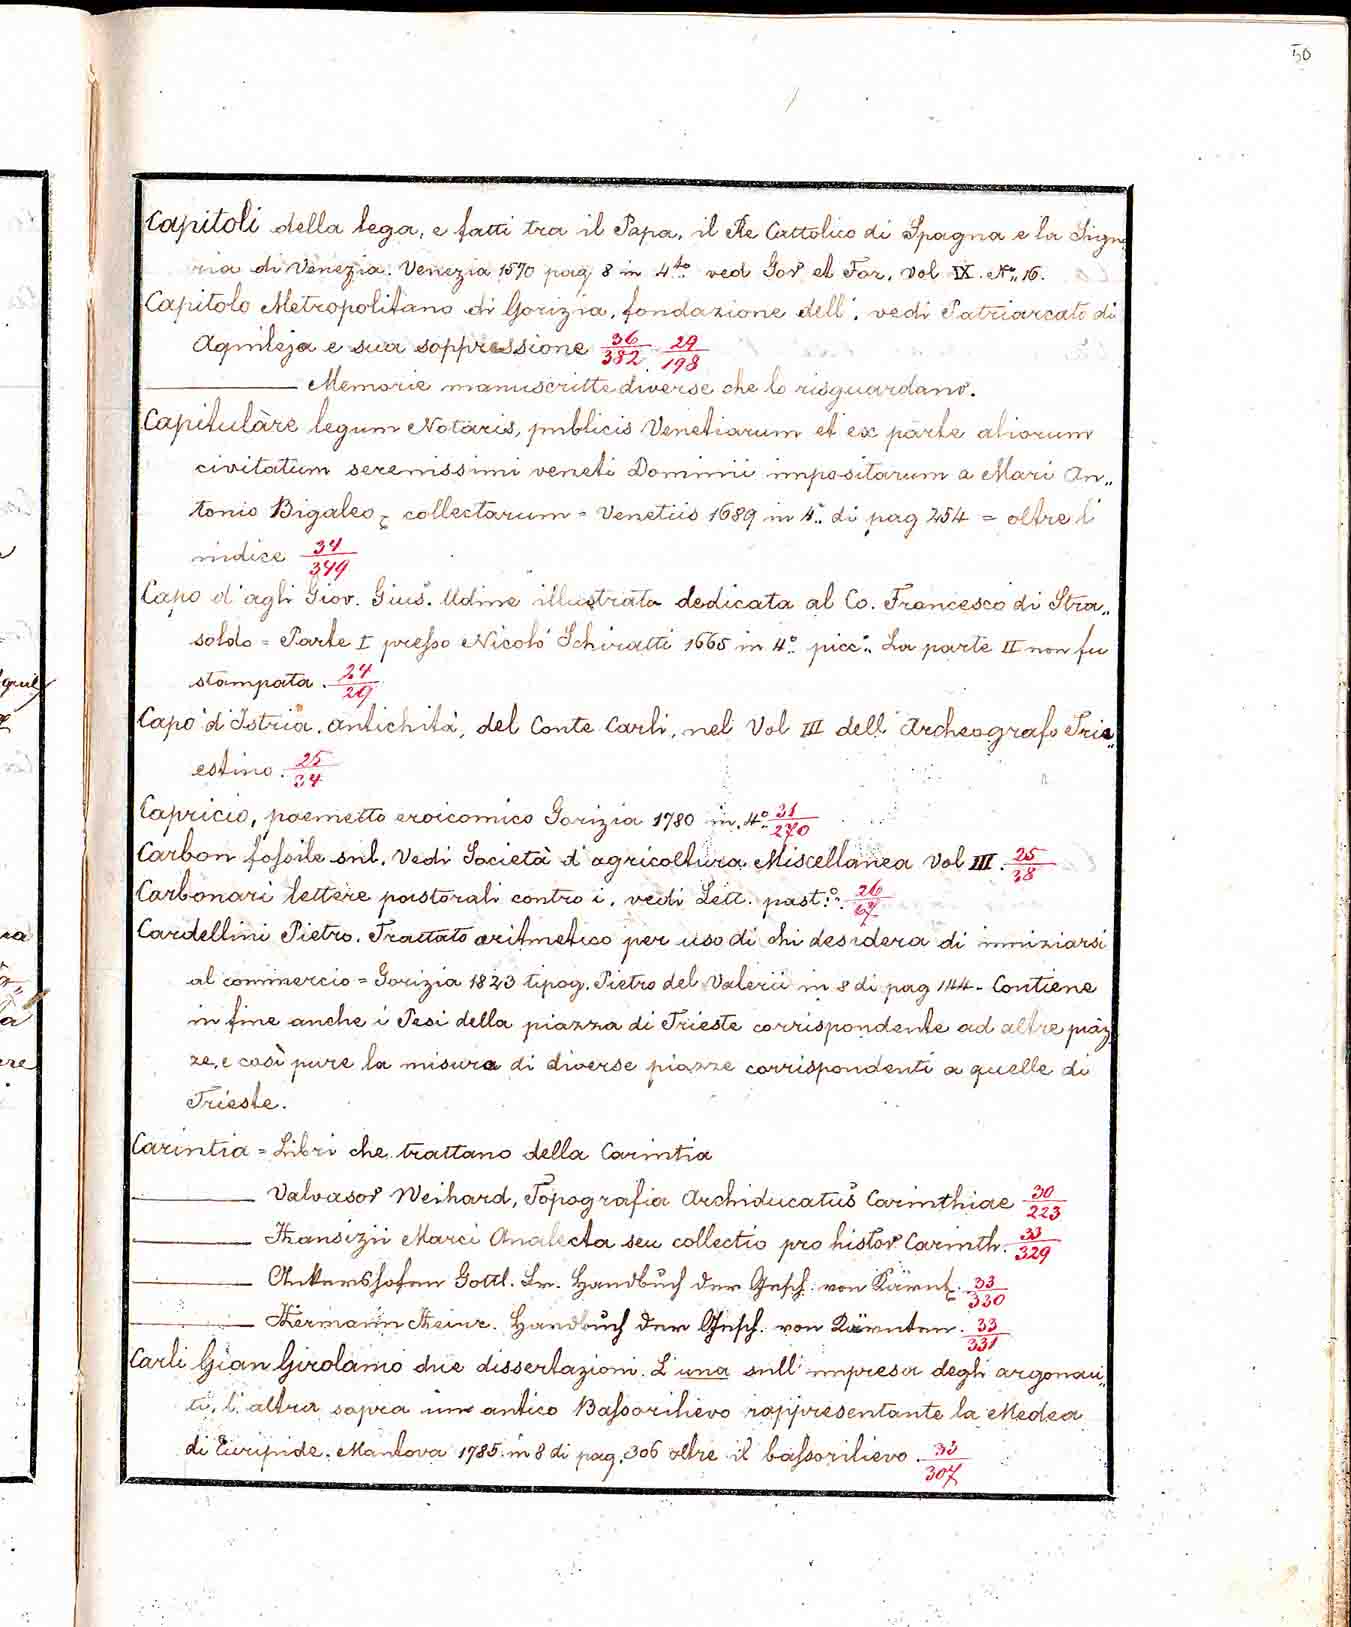 50
Capitoli della lega, e fatti tra il Papa, il Re Cattolico di Spagna e la Signo
ria di Venezia. Venezia 1570 pag 8 in 4to ved Gor et For. Vol IX. No 16.
Capitolo Metropolitano di Gorizia, fondazione dell', vedi Patriarcato di
Aquileja e sua soppressione 36/382. 29/198
——— Memorie manuscritte diverse che lo risguardano.
Capitulare legum Notaris, publicis Venetiarum et ex parte aliorum
civitatum serenissimi veneti Dominii impositarum a Mari An„
tonio Bigaleo, collectarum = Venetiis 1689 in 4° di pag 254 = oltre l'
indice 34/349
Capo d'agli Giov. Gius. Udine illustrata dedicata al Co. Francesco di Stra„
soldo = Parte I presso Nicolò Schiratti 1665 in 4° picc° La parte II non fu
stampata. 24/29
Capo d'Istria, antichità, del Conte Carli, nel Vol III dell' Archeografo Trie„
estino. 25/34
Capricio, poemetto eroicomico Gorizia 1780 in 4° 31/270
Carbon fossile sul. Vedi Società d'agricoltura Miscellanea Vol III. 25/38
Carbonari lettere pastorali contro i, vedi Lett. past. 26/67
Cardellini Pietro. Trattato aritmetico per uso di chi desidera di inniziarsi
al commercio = Gorizia 1823 tipog. Pietro del Valerii in 8 di pag 144 - Contiene
in fine anche i Pesi della piazza di Trieste corrispondente ad altre piaz
ze, e così pure la misura di diverse piazze corrispondenti a quelle di
Trieste.
Carintia = Libri che trattano della Carintia
——— Valvasor Weihard, Topografia Archiducatus Carinthiae 30/223
——— Hansizii Marci Analecta seu collectio pro histor Carinth. 33/329
——— Ankershofen Gottl. Fr. Handbuch der Gesch. von Kärnt. 33/330
——— Hermann Heinr. Handbuch der Gesch. von Kärnten. 33/331
Carli Gian Girolamo due dissertazioni. L'una sull' impresa degli argonau„
ti, l'altra sopra un antico Bassorilievo rappresentante la Medea
di Euripide. Mantova 1785 in 8 di pag. 306 oltre il bassorilievo. 33/307